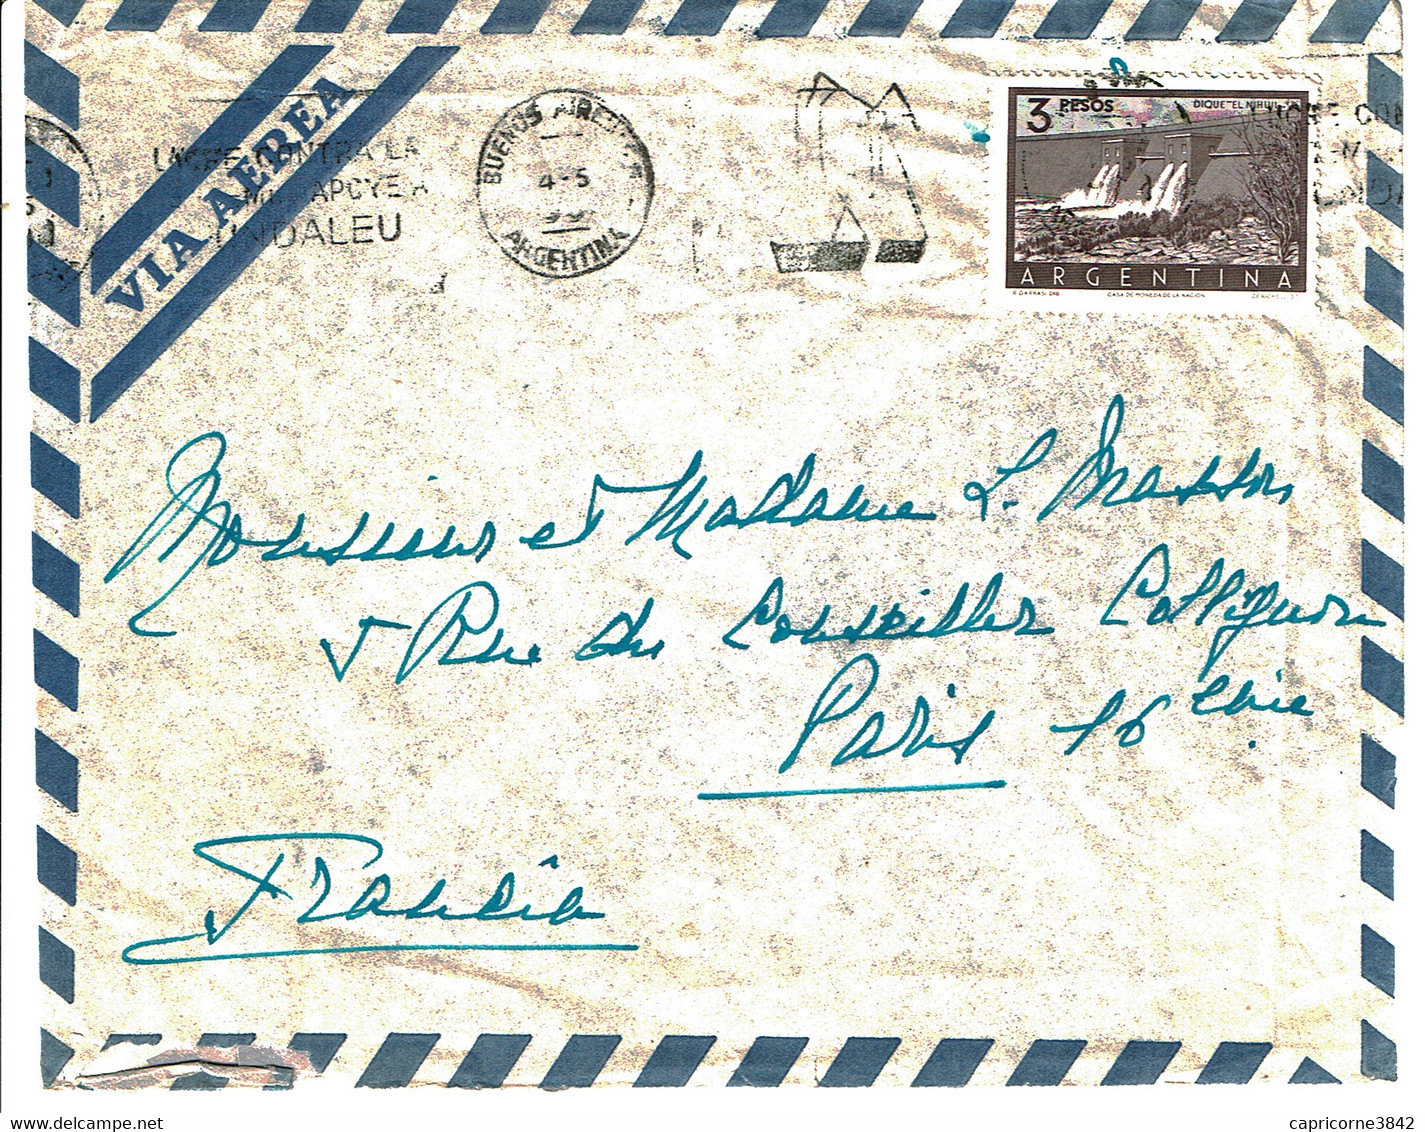 VIA AEREA
CONTRA LA
APOYE A
FUNDALEU
BUENOS AIRES
4-5
ARGENTINA
3 PESOS
DIQUE "EL NIHUIL"
ARGENTINA
CASA DE MONEDA DE LA NACION
Monsieur et Madame L. Masson
5 Rue du Conseiller Collignon
Paris 16 ème
Francia
www.delcampe.net
capricorne3842